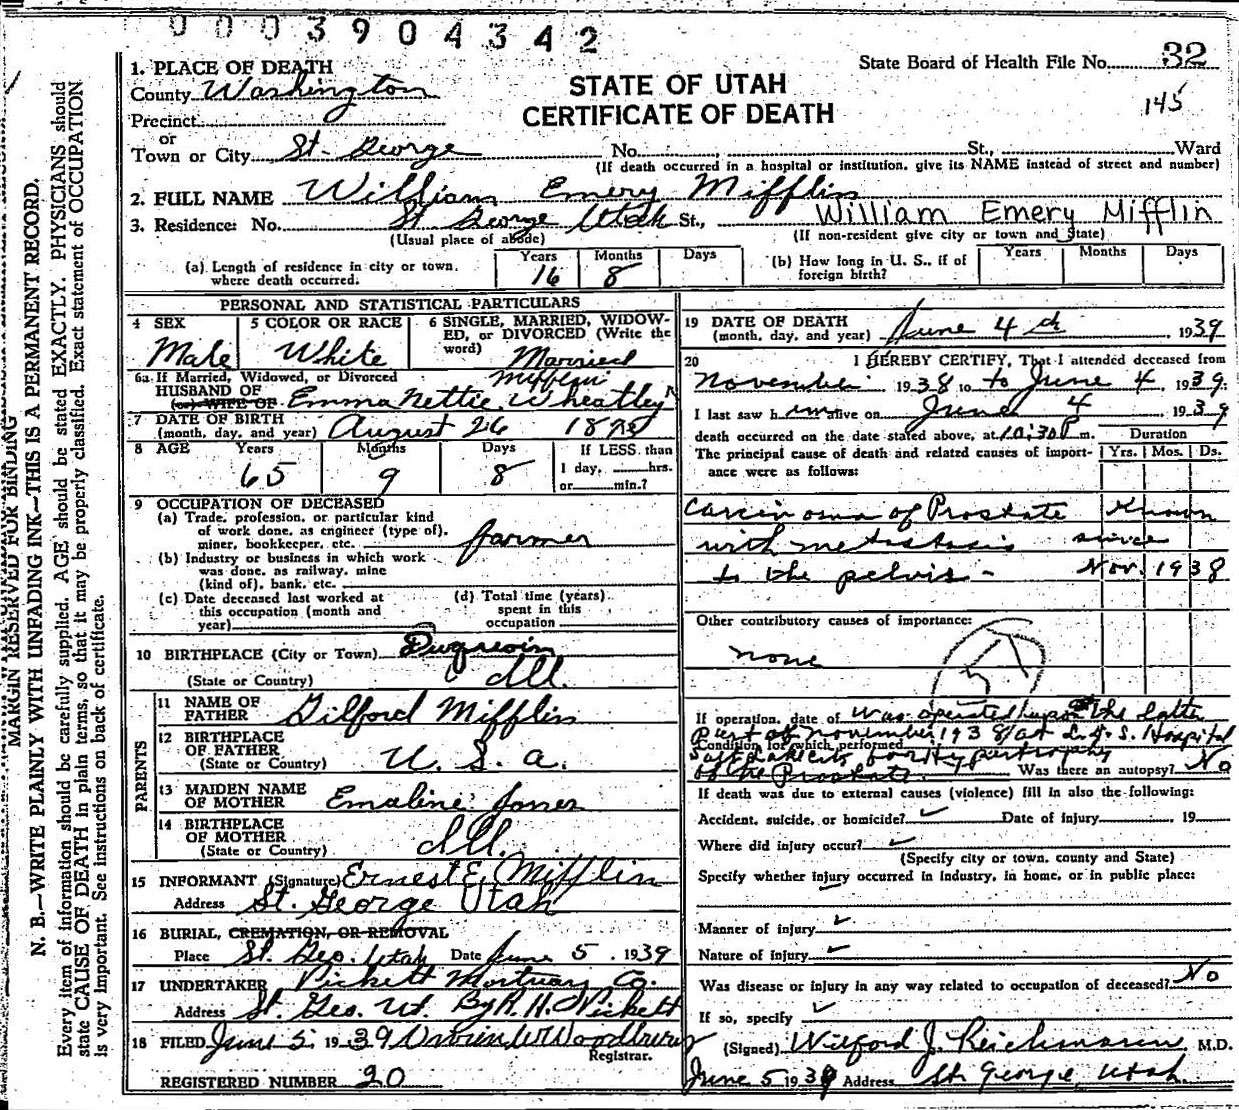 9003904342
State Board of Health File No. 32
145
STATE OF UTAH
CERTIFICATE OF DEATH
MARGIN RESERVED FOR BINDING
N. B.—WRITE PLAINLY WITH UNFADING INK—THIS IS A PERMANENT RECORD.
Every item of information should be carefully supplied. AGE should be stated EXACTLY. PHYSICIANS should
state CAUSE OF DEATH in plain terms, so that it may be properly classified. Exact statement of OCCUPATION
is very important. See instructions on back of certificate.
1. PLACE OF DEATH
County Washington
Precinct
or
Town or City St. George No. St., Ward
(If death occurred in a hospital or institution, give its NAME instead of street and number)
2. FULL NAME William Emery Mifflin
3. Residence: No. St George Utah St., William Emery Mifflin
(Usual place of abode) (If non-resident give city or town and State)
(a) Length of residence in city or town where death occurred. Years 16 Months 8 Days
(b) How long in U. S., if of foreign birth? Years Months Days
PERSONAL AND STATISTICAL PARTICULARS
4 SEX Male
5 COLOR OR RACE White
6 SINGLE, MARRIED, WIDOWED, or DIVORCED (Write the word) Married
6a If Married, Widowed, or Divorced
HUSBAND OF
(or) WIFE OF Emma Nettie Wheatley Mifflin
7 DATE OF BIRTH
(month, day, and year) August 26
8 AGE Years 65 Months 9 Days 8 If LESS than
1 day, hrs.
or min.?
9 OCCUPATION OF DECEASED
(a) Trade, profession, or particular kind
of work done, as engineer (type of),
miner, bookkeeper, etc. farmer
(b) Industry or business in which work
was done, as railway, mine
(kind of), bank, etc.
(c) Date deceased last worked at
this occupation (month and
year)
(d) Total time (years)
spent in this
occupation
10 BIRTHPLACE (City or Town) Duqueoin
(State or Country) Ill.
PARENTS
11 NAME OF
FATHER Gilford Mifflin
12 BIRTHPLACE
OF FATHER
(State or Country) U. S. a.
13 MAIDEN NAME
OF MOTHER Emaline Jones
14 BIRTHPLACE
OF MOTHER
(State or Country) Ill.
15 INFORMANT (Signature) Ernest E. Mifflin
Address St. George Utah
16 BURIAL, CREMATION, OR REMOVAL
Place St. Geo. Utah Date June 5, 1939
17 UNDERTAKER Pickett Mortuary Co.
Address St. Geo. Ut. By R. H. Pickett
18 FILED June 5, 1939 Woodbury
Registrar.
REGISTERED NUMBER 20
19 DATE OF DEATH
(month, day, and year) June 4th 1939
20 I HEREBY CERTIFY, That I attended deceased from
November 1938 to to June 4, 1939.
I last saw him alive on June 4, 1939
death occurred on the date stated above, at 10:30P m. Duration
The principal cause of death and related causes of importance were as follows: Yrs. Mos. Ds.
Carcinoma of Prostate Known
with metastasis since
to the pelvis - Nov. 1938
Other contributory causes of importance:
none
If operation, date of Was operated upon the latter
part of November 1938 at L.D.S. Hospital
Condition for which performed
Salt Lake City for Hypertrophy
of the Prostate. Was there an autopsy? No
If death was due to external causes (violence) fill in also the following:
Accident, suicide, or homicide? Date of injury 19
Where did injury occur?
(Specify city or town, county and State)
Specify whether injury occurred in industry, in home, or in public place:
Manner of injury
Nature of injury
Was disease or injury in any way related to occupation of deceased? No
If so, specify
(Signed) Wilford J. Reichmann, M.D.
June 5 1939 Address St. George, Utah.